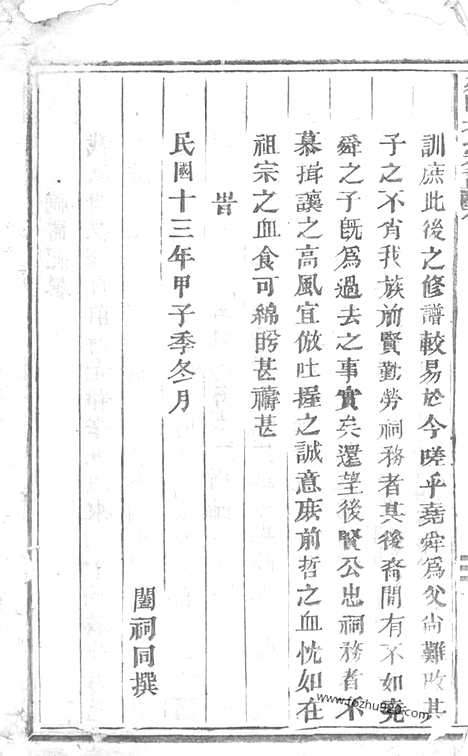 訓庶此後之修譜較易於今嗟乎堯舜爲父尙難改其
子之不肖我族前賢勤勞祠務者其後裔間有不如堯
舜之子旣爲過去之事實矣還望後賢公忠祠務者不
慕揖讓之高風宜倣吐握之誠意庶前哲之血忱如在
祖宗之血食可綿盼甚禱甚
旹
民國十三年甲子季冬月
闔祠同撰
www.fozhu920.com